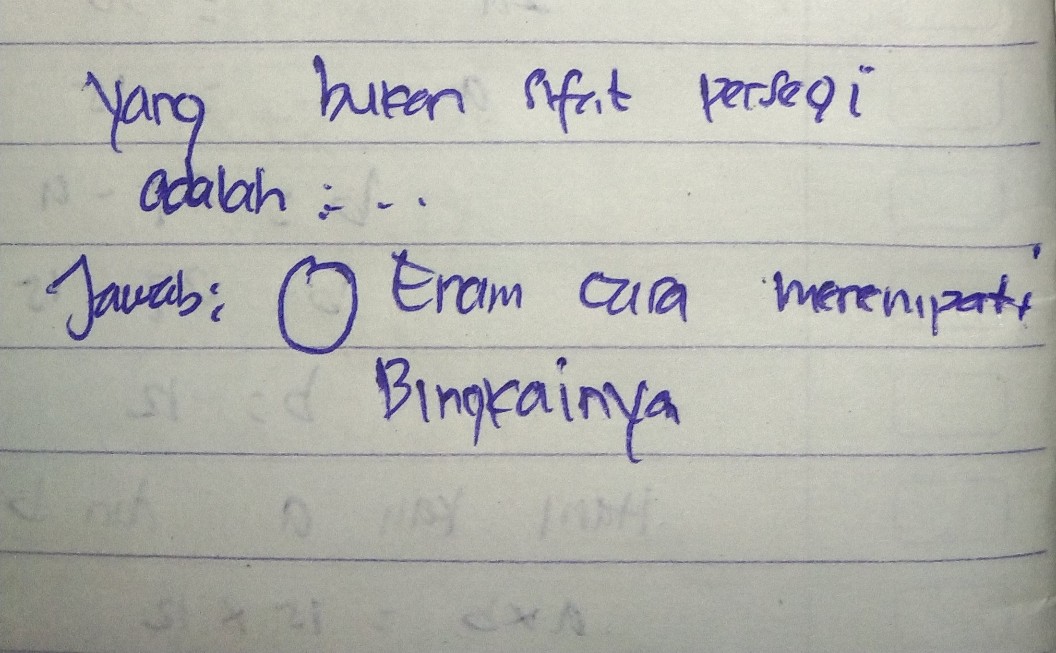 yang bukan sifat persegi
adalah : - - .
Jawab: O Enam cara menempati
Bingkainya